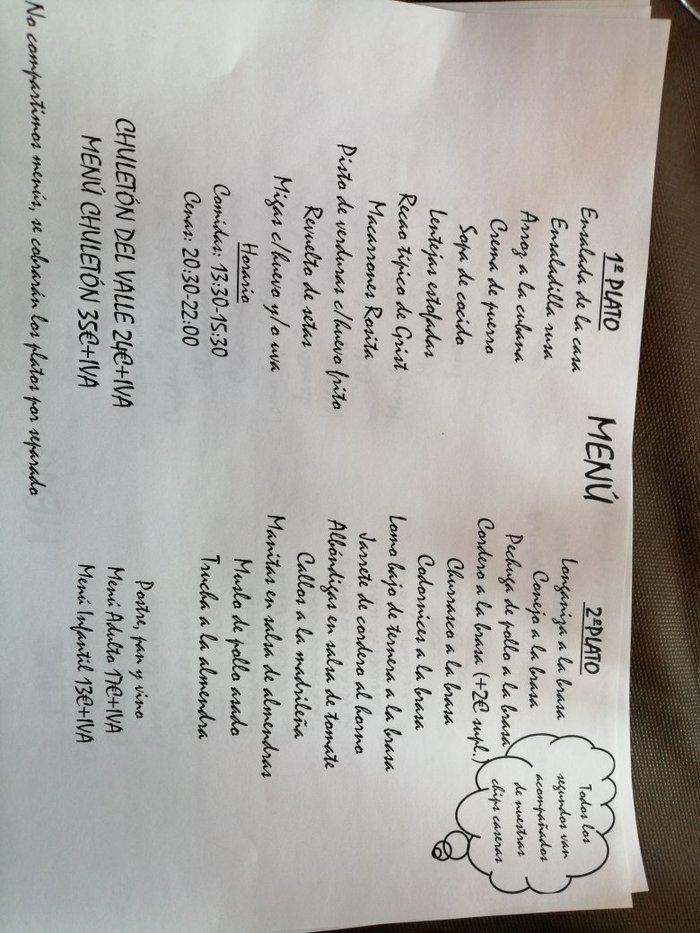 MENÚ
1º PLATO
Ensalada de la casa
Ensaladilla rusa
Arroz a la cubana
Crema de puerro
Sopa de cocido
Lentejas estofadas
Recao típico de Grist
Macarrones Rosita
Pisto de verduras c/huevo frito
Revuelto de setas
Migas c/huevo y/o uva
Horario
Comidas: 13:30-15:30
Cenas: 20:30-22:00
CHULETÓN DEL VALLE 24€+IVA
MENÚ CHULETÓN 35€+IVA
2º PLATO
Longaniza a la brasa
Conejo a la brasa
Pechuga de pollo a la brasa
Cordero a la brasa (+2€ supl.)
Churrasco a la brasa
Codornices a la brasa
Lomo bajo de ternera a la brasa
Jarrete de cordero al horno
Albóndigas en salsa de tomate
Callos a la madrileña
Manitas en salsa de almendras
Muslo de pollo asado
Trucha a la almendra
Todos los
segundos van
acompañados
de nuestras
chips caseras
Postre, pan y vino
Menú Adulto 17€+IVA
Menú Infantil 13€+IVA
No compartimos menús, se cobrarán los platos por separado